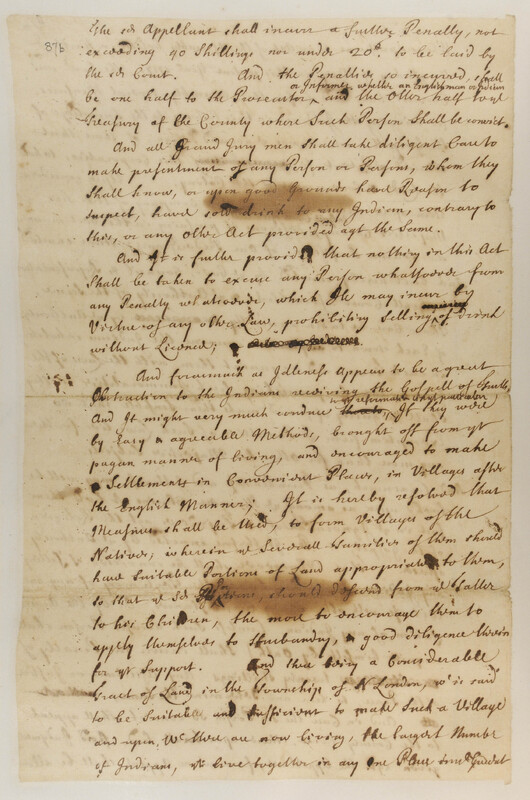 87b
The sd Appellant shall incurr a further Penalty, not
exceeding 40 Shillings nor under 20s. to be laid by
the sd Court. And the Penalties so incurred, shall
or Informer, whether an Englishman or Indian
be one half to the Prosecutor, and the Other half to ye
Treasury of the County where Such Person Shall be convict.
And all Grand Jury men Shall take diligent Care to
make presentment of any Person or Persons, whom they
Shall know, or upon good Grounds have Reason to
suspect, have sold drink to any Indian, contrary to
this, or any Other Act provided agt the Same.
And It is further provided that nothing in this Act
Shall be taken to excuse any Person whatsoever from
any Penalty whatsoever, which He may incur by
Virtue of any other Law, prohibiting Selling of drink
without Licence;
And forasmuch as Idleness Appears to be a great
Obstruction to the Indians receiving the Gospell of
And It might very much conduce If they were
by Easy & agreeable Methods, brought off from yr
pagan manner of living, and encouraged to make
Settlements in Convenient Places, in Villages after
the English Manner; It is hereby resolved that
Measures shall be Used, to form Villages of the
Natives, wherein ye Severall Families of them should
have Suitable Portions of Land appropriated to them,
so that ye sd should descend from ye Father
to his Children, the more to encourage them to
apply themselves to Husbandry, & good diligence therein
for yr Support. And there being a Considerable
Tract of Land in the Township of N London, wc is said
to be Suitable and Sufficient to make Such a Village
and upon wc there are now living, the largest Number
of Indians, yt live together in any one Place in